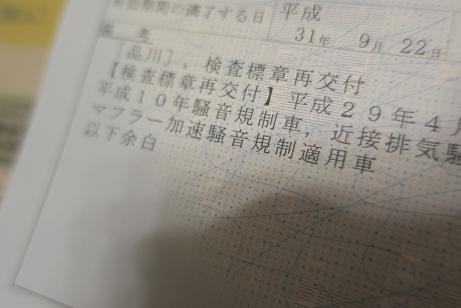 有効期間の満了する日
平成
31年 9月 22日
備考
[品川],検査標章再交付
【検査標章再交付】平成29年4月
平成10年騒音規制車,近接排気騒
マフラー加速騒音規制適用車
以下余白